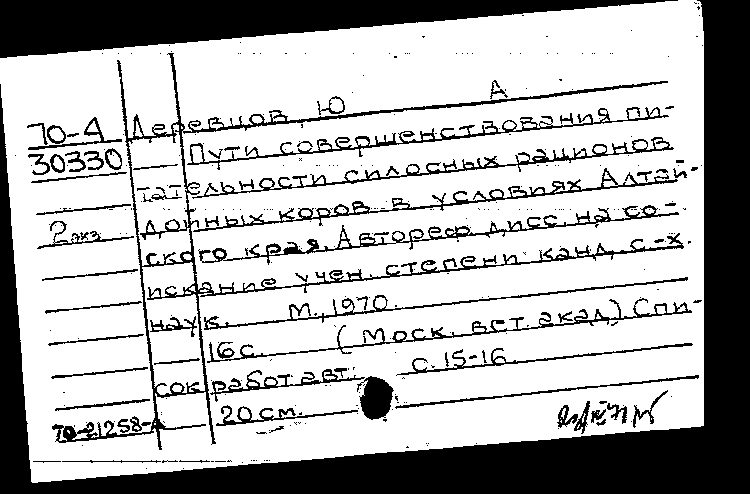 70-4 Деревцов, Ю А
30330 Пути совершенствования пи-
тательности силосных рационов
2 экз дойных коров в условиях Алтай-
ского края. Автореф. дисс. на со-
искание учен. степени канд. с.-х.
наук. М., 1970.
16 с. (Моск. вет. акад.) Спи-
сок работ авт: с. 15-16.
70-21258-А 20 см.